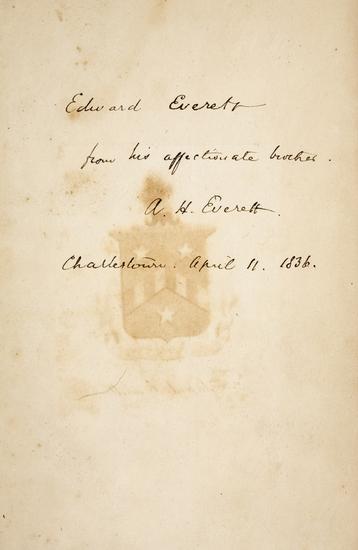 Edward Everett
from his affectionate brother.
A. H. Everett.
Charlestown. April 11. 1836.